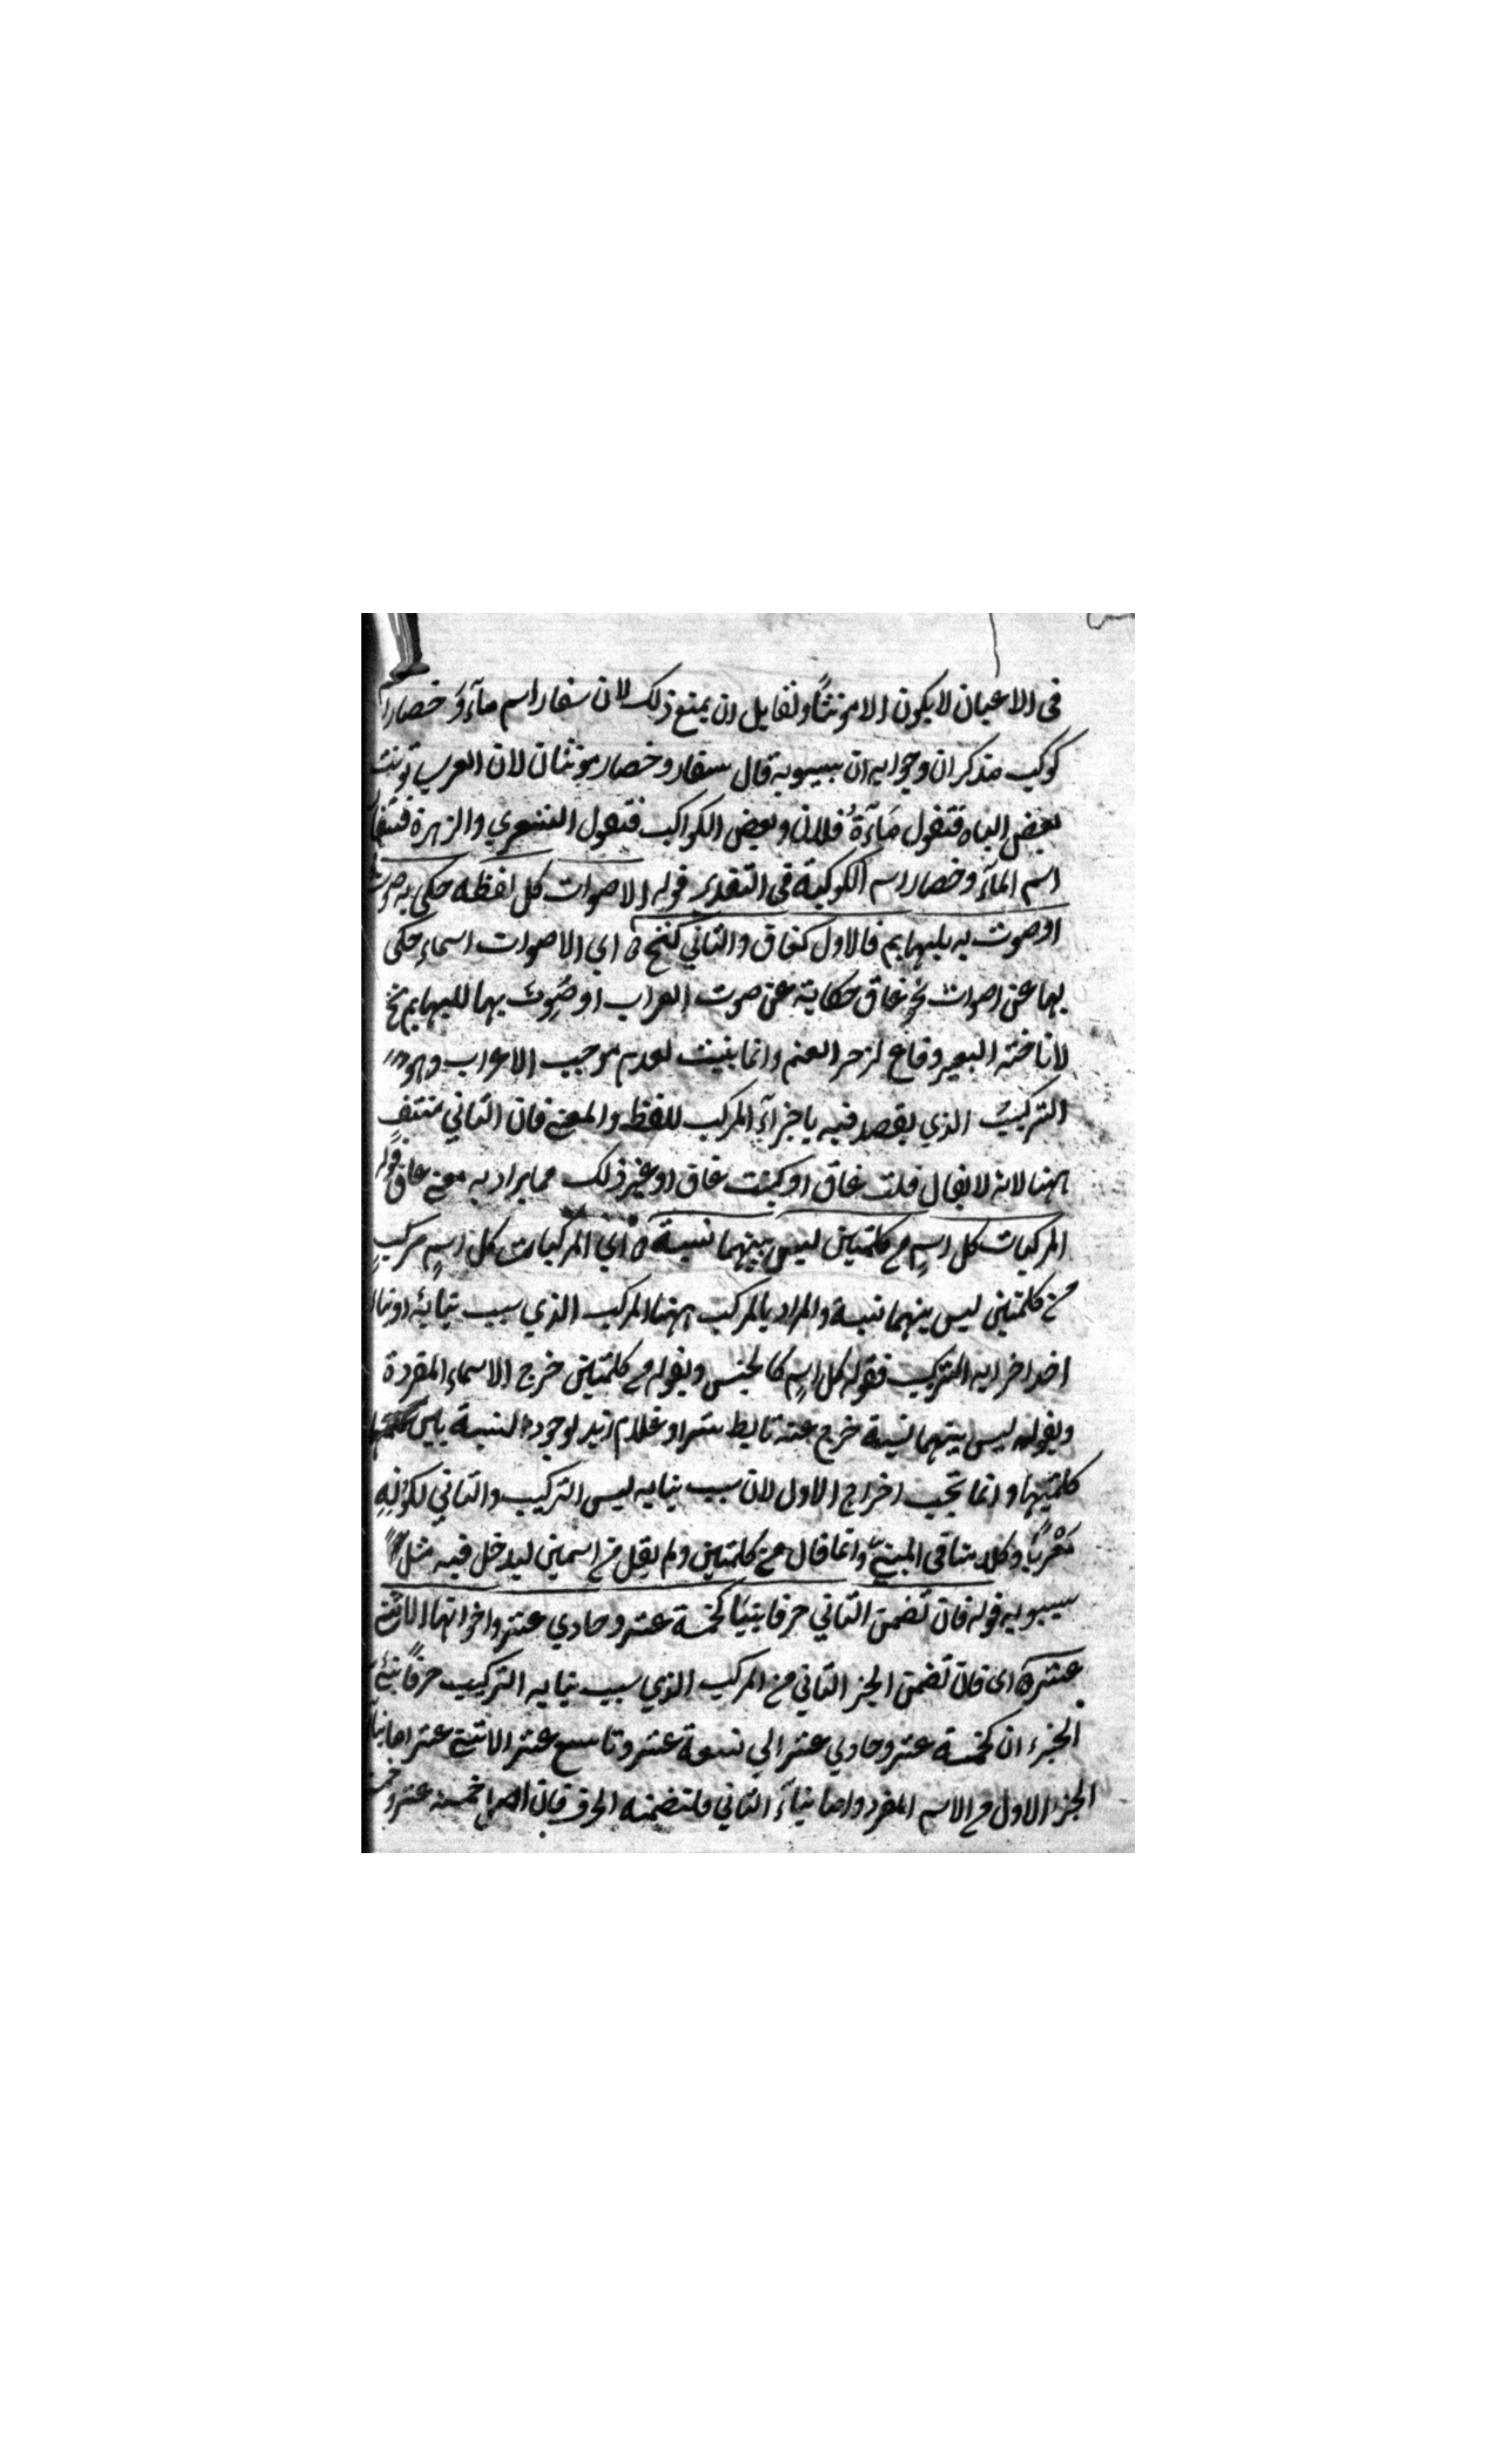 في الاعيان لا يكون الا مونثا ولقايل ان يمنع ذلك لان سفار اسم ماء وخضار
كوكب مذكران وجوابه ان سيبويه قال سفار وخضار مونثان لان العرب تونث
بعض المياه فتقول ماءة فلان وبعض الكواكب فتقول الشعري والزهرة فسفار
اسم الماء وخضار اسم الكوكبة في التقدير قوله الاصوات كل لفظ حكي به صوت
او صوت به للبهايم فالاول كغاق والثاني كنخ اي الاصوات اسماء حكي
بها عن اصوات نحو غاق حكاية عن صوت الغراب او صوت بها للبهايم نخ
لاناخة البعير وقاع لزجر الغنم وانما بنيت لعدم موجب الاعراب وهو
التركيب الذي يقصد فيه باجزاء المركب للفظ والمعنى فان الثاني منتف
ههنا لانه لا يقال قلت غاق او كيت غاق او غير ذلك مما يراد به معنى غاق قوله
المركبات كل اسم من كلمتين ليس بينهما نسبة اي المركبات كل اسم مركب
من كلمتين ليس بينهما نسبة والمراد بالمركب ههنا المركب الذي سبب بنايه
احد اجزايه التركيب فقوله كل اسم كالجنس وبقوله من كلمتين خرج الاسماء المفردة
وبقوله ليس بينهما نسبة خرج عنه تابط شرا وغلام زيد لوجود النسبة بين
كلمتيها وانما يجب اخراج الاول لان سبب بنايه ليس التركيب والثاني لكونه
معربا وكلامنا في المبني وانما قال من كلمتين ولم يقل من اسمين ليدخل فيه مثل
سيبويه قوله فان تضمن الثاني حرفا بنيا كخمسة عشر وحادي عشر واخواتها الا اثني
عشر اي فان تضمن الجز الثاني من المركب الذي سبب بنايه التركيب حرفا بني
الجزءان كخمسة عشر وحادي عشر الى تسعة عشر وتاسع عشر الا اثني عشر اما بناء
الجزء الاول من الاسم المفرد واما بناء الثاني فلتضمنه الحرف فان اصل خمسة عشر